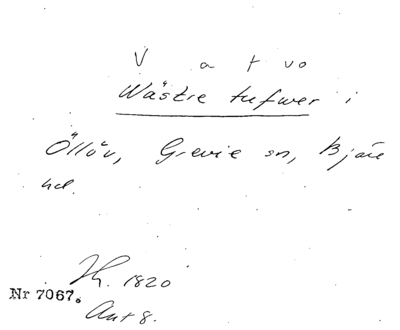 V a t vo
Wästre tufwer i
Öllöv, Grevie sn, Bjäre
hd.
Th. 1820
Nr 7067.
Ant 8.